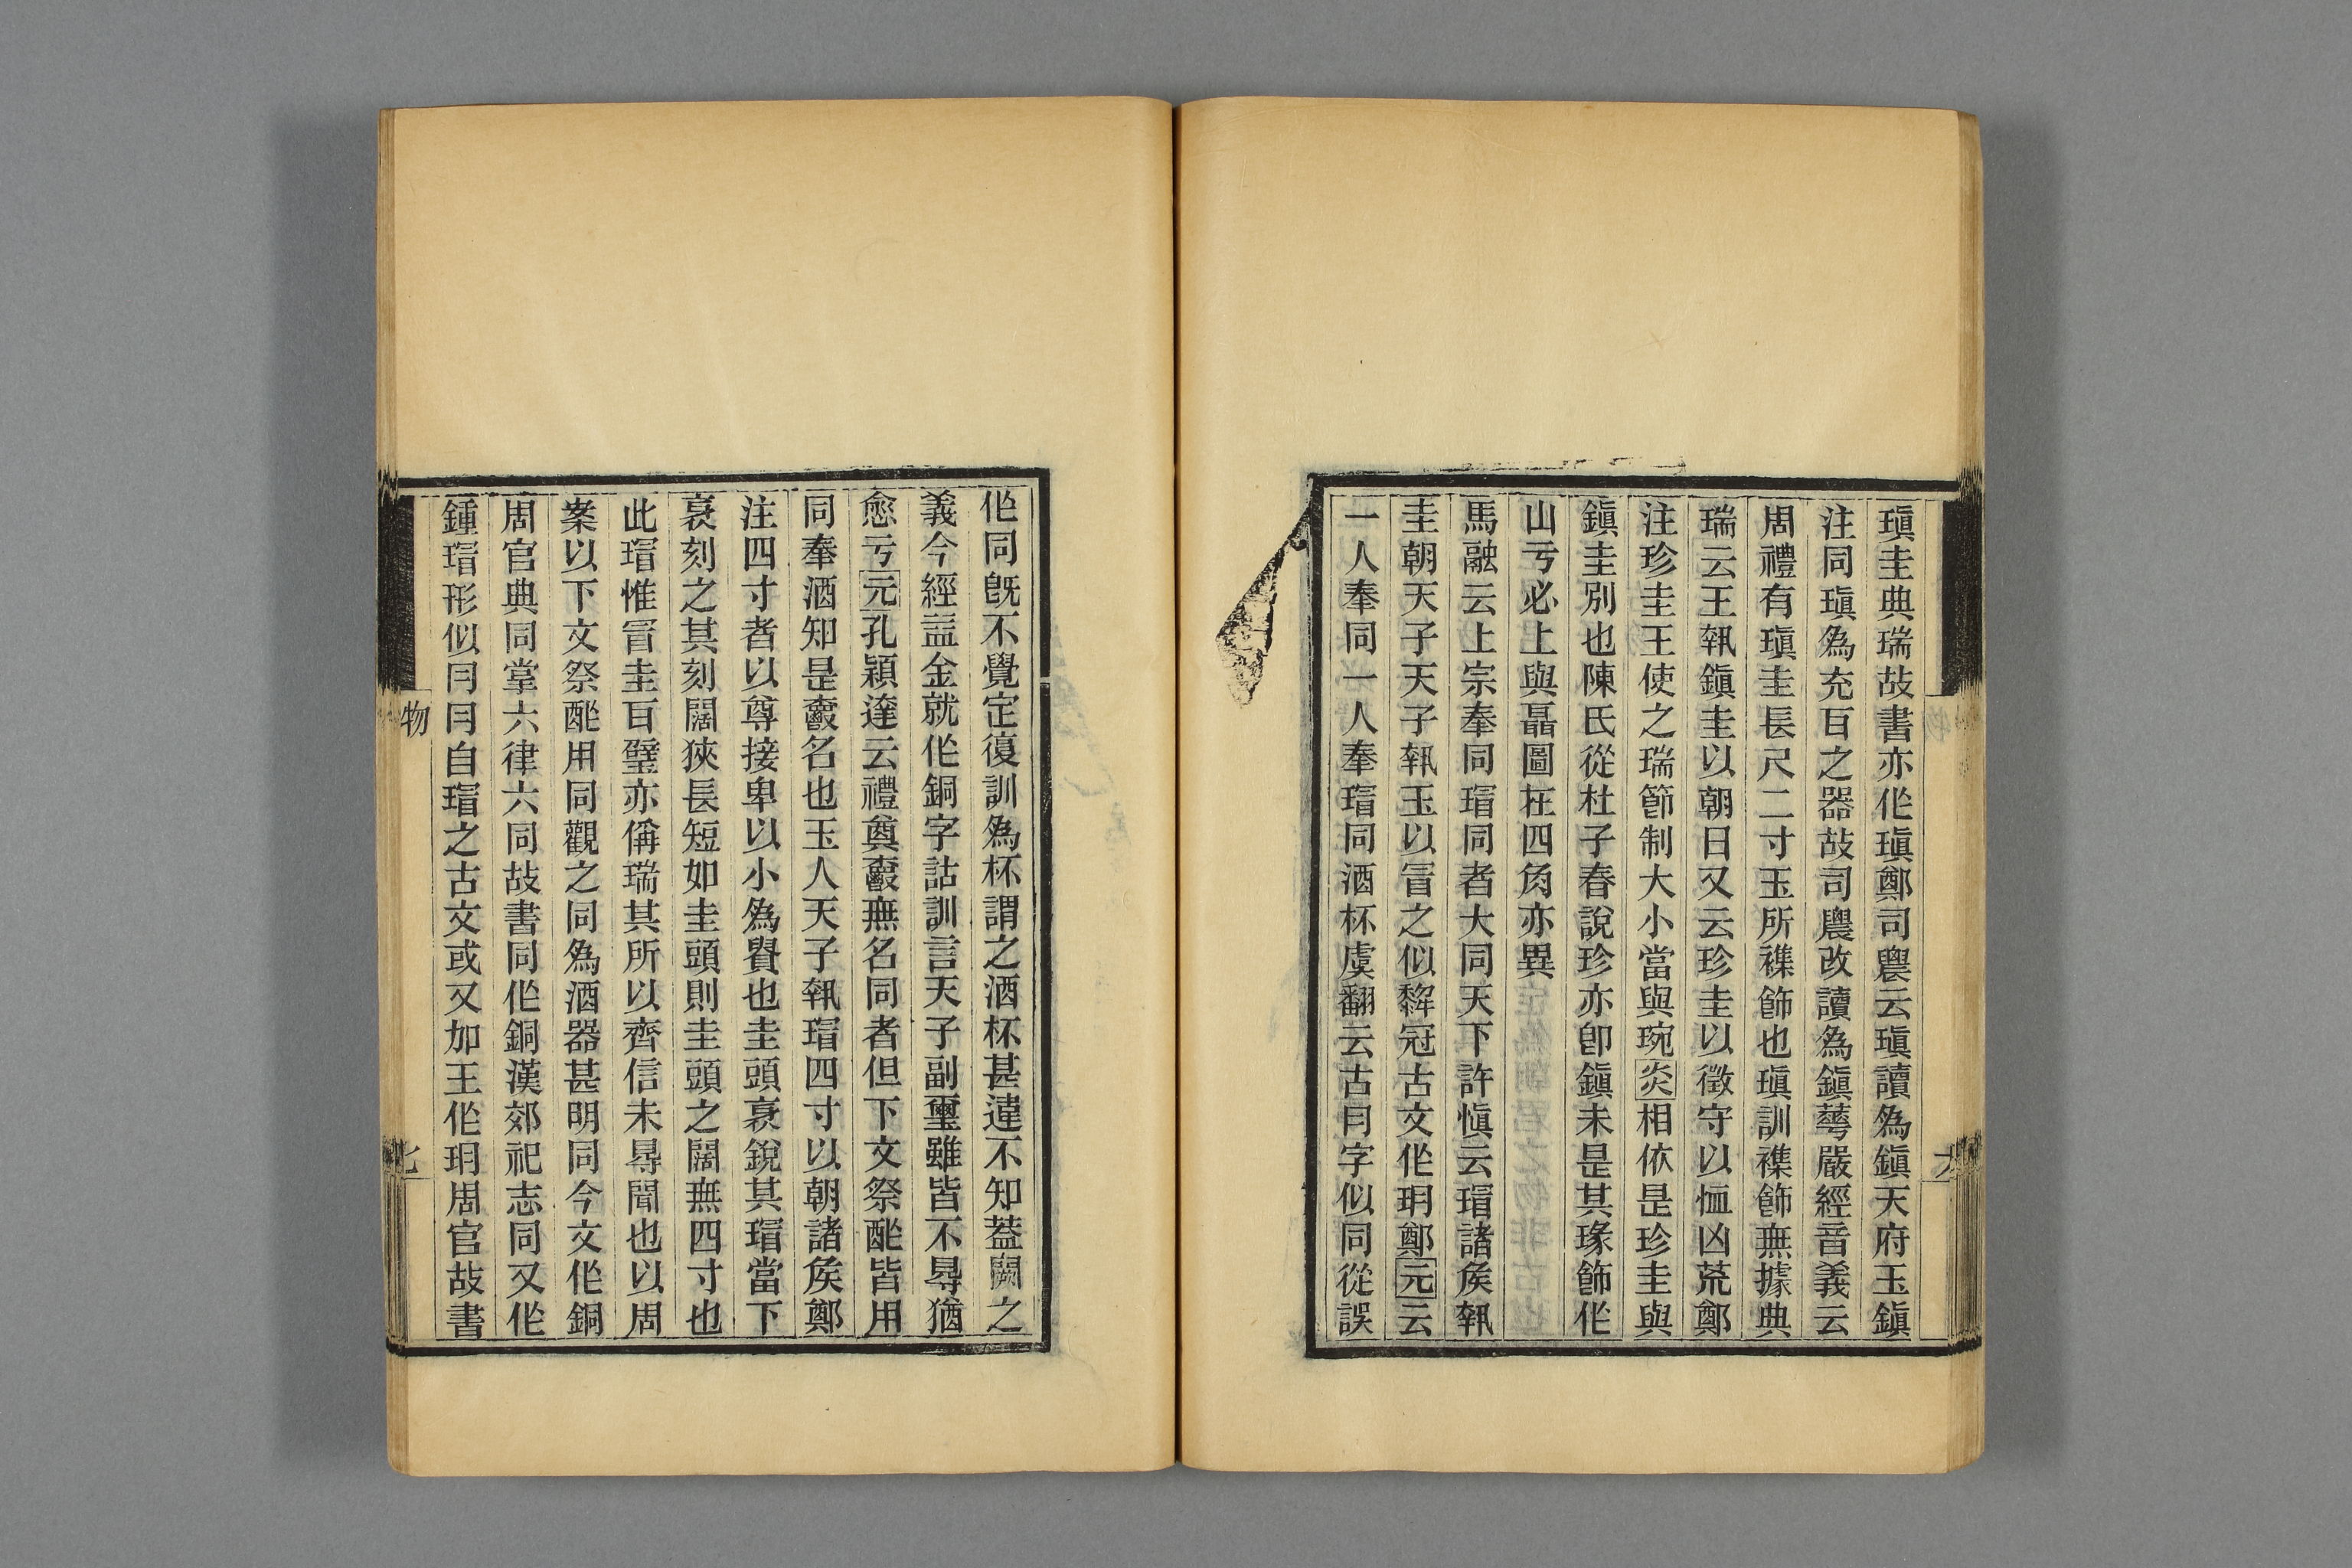 瑱圭典瑞故書亦作瑱鄭司農云瑱讀爲鎭天府玉鎭
注同瑱爲充耳之器故司農改讀爲鎭華嚴經音義云
周禮有瑱圭長尺二寸玉所襍飾也瑱訓襍飾無據典
瑞云王執鎭圭以朝日又云珍圭以徵守以恤凶荒鄭
注珍圭王使之瑞節制大小當與琬炎相依是珍圭與
鎭圭別也陳氏從杜子春說珍亦卽鎭未是其瑑飾作
山亏必上與聶圖在四角亦異
馬融云上宗奉同瑁同者大同天下許愼云瑁諸矦執
圭朝天子天子執玉以冒之似犂冠古文作玥鄭元云
一人奉同一人奉瑁同酒杯虞翻云古冃字似同從誤
作同旣不覺定復訓爲杯謂之酒杯甚違不知葢闕之
義今經益金就作銅字詁訓言天子副璽雖皆不㝵猶
愈亏元孔穎達云禮奠爵無名同者但下文祭酢皆用
同奉酒知是爵名也玉人天子執瑁四寸以朝諸矦鄭
注四寸者以尊接卑以小爲貴也圭頭衺銳其瑁當下
衺刻之其刻闊狹長短如圭頭則圭頭之闊無四寸也
此瑁惟冒圭耳璧亦偁瑞其所以齊信未㝵聞也以周
案以下文祭酢用同觀之同爲酒器甚明同今文作銅
周官典同掌六律六同故書同作銅漢郊祀志同又作
鍾瑁形似冃冃自瑁之古文或又加王作玥周官故書
物
七